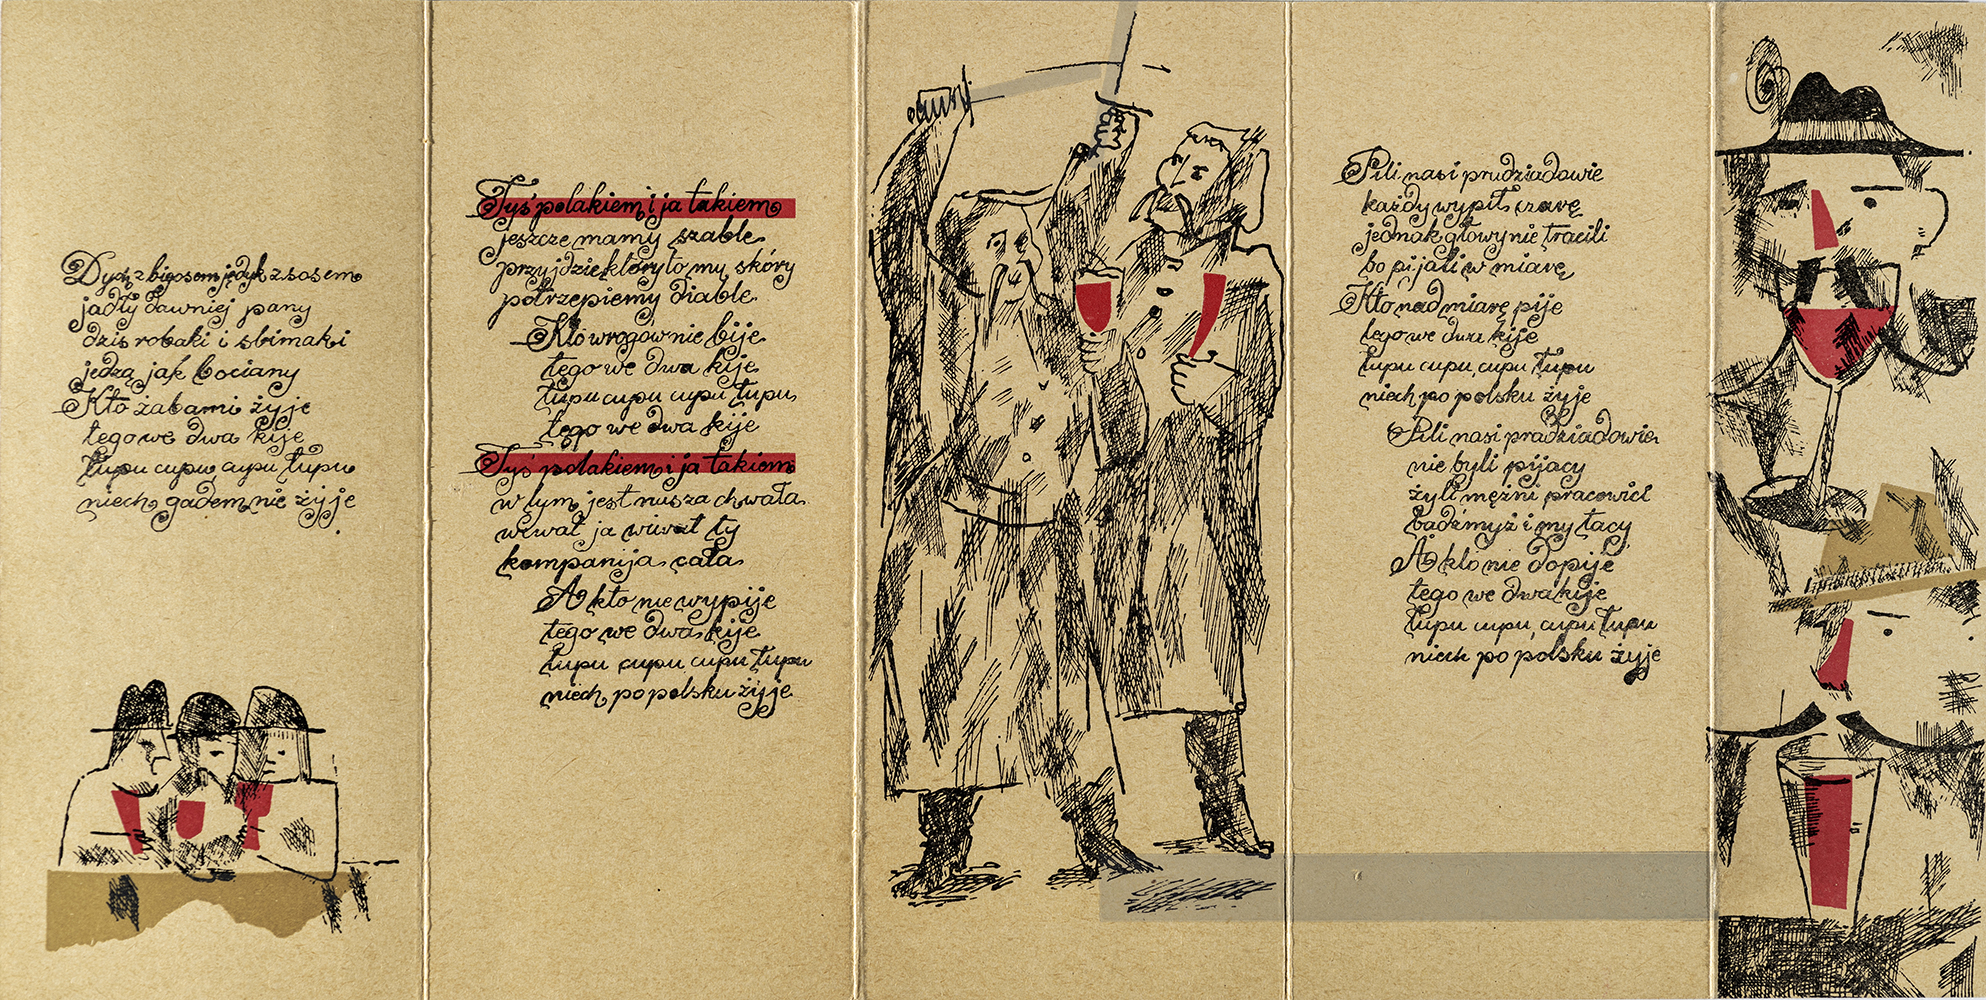 Dydź z bigosem jędyk z sosem
jadły dawniej pany
dziś robaki i slimaki
jedzą jak bociany
Kto żabami żyje
tego we dwa kije
łupu cupu cupu łupu
niech gadem nie żyje
Tyś polakiem i ja takiem
jeszcze mamy szable
przyjdzie który to mu skóry
potrzepiemy diable
Kto wrogów nie bije
tego we dwa kije
łupu cupu cupu łupu
tego we dwa kije
Tyś polakiem i ja takiem
w tym jest nasza chwała
wiwat ja wiwat ty
kompanija cała
A kto nie wypije
tego we dwa kije
łupu cupu cupu łupu
niech po polsku żyje
Pili nasi pradziadowie
każdy wypił czarę
jednak głowy nie tracili
bo pijali w miarę
Kto nad miarę pije
tego we dwa kije
łupu cupu, cupu łupu
niech po polsku żyje
Pili nasi pradziadowie
nie byli pijacy
żyli mężni pracowici
bądźmyż i my tacy
A kto nie dopije
tego we dwa kije
łupu cupu, cupu łupu
niech po polsku żyje